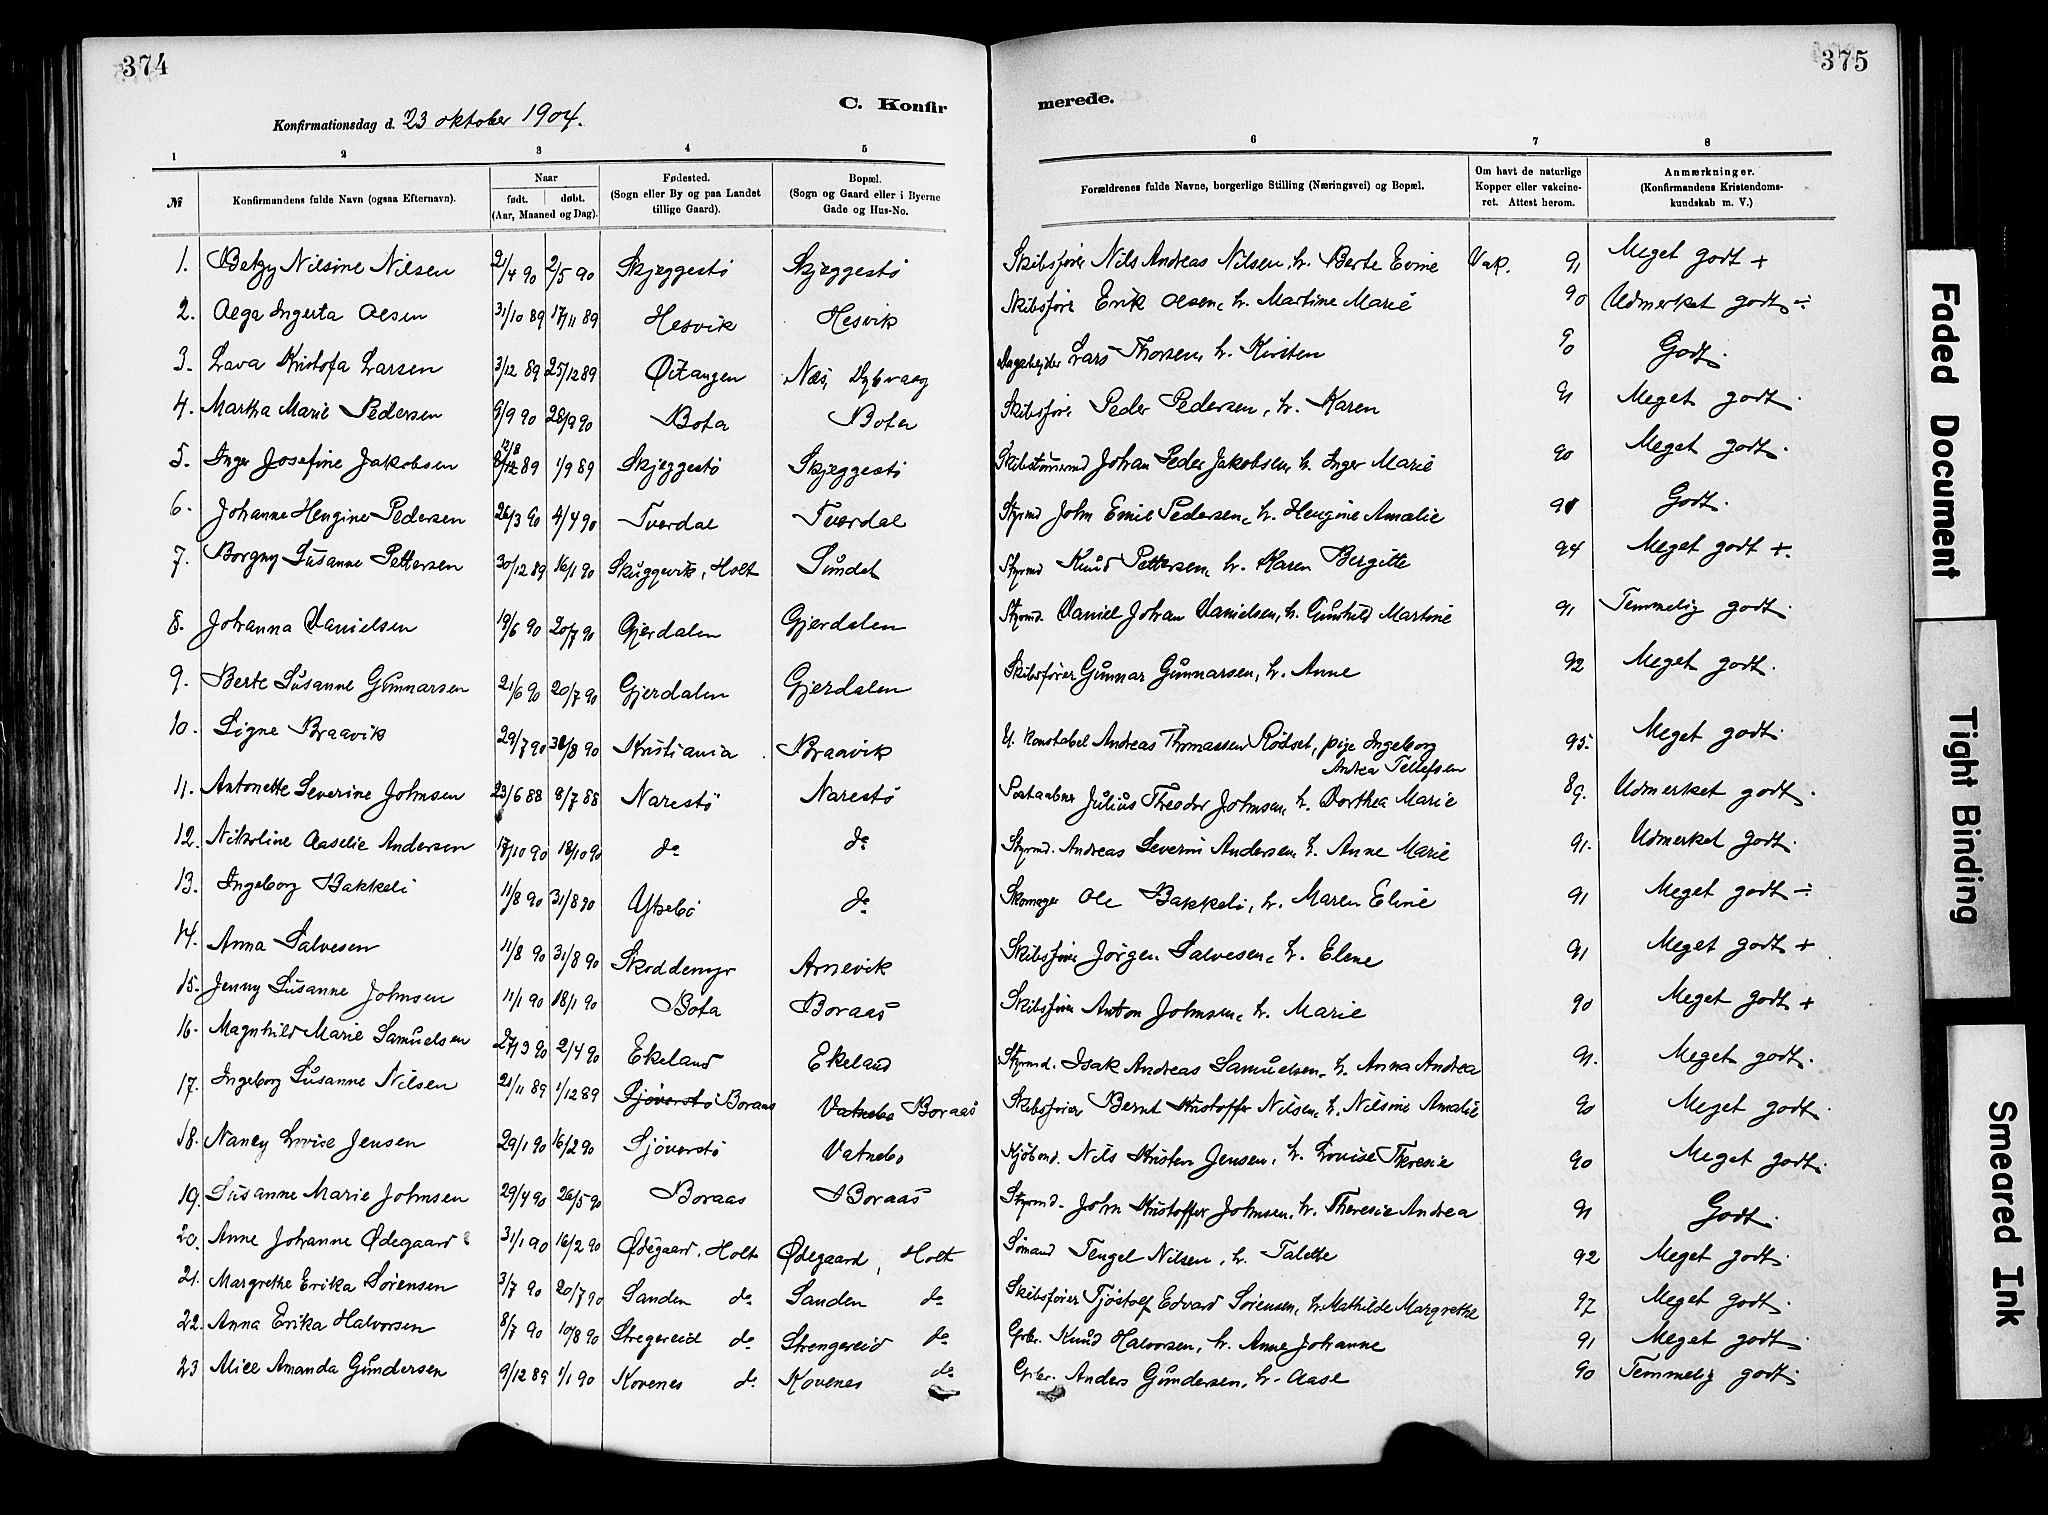 374
375
C. Konfir merede.
Konfirmationsdag d. 23 oktober 1904.
1 2 3 4 5 6 7 8
№ Konfirmandens fulde Navn (ogsaa Efternavn). Naar født. døbt. (Aar, Maaned og Dag). Fødested. (Sogn eller By og paa Landet tillige Gaard). Bopæl. (Sogn og Gaard eller i Byerne Gade og Hus-No. Forældrenes fulde Navne, borgerlige Stilling (Næringsvei) og Bopæl. Om havt de naturlige Kopper eller vakcineret. Attest herom. Anmærkninger. (Konfirmandens Kristendomskundskab m. V.)
1. Betzy Nilsine Nilsen 2/4 90 2/5 90 Skjeggestø Skjeggestø Skibsfører Nils Andreas Nilsen, h. Berte Evine Vak. 91 Meget godt +
2. Olga Ingerta Olsen 31/10 89 17/11 89 Hesvik Hesvik Skibsfører Erik Olsen, h. Martine Marie 90 Udmerket godt ÷
3. Lava Kristofa Larsen 3/12 89 25/12 89 Oitangen Næs, Dybvaag Dagarbejder Lars Thorsen, h. Kirsten 90 Godt.
4. Martha Marie Pedersen 9/9 90 28/9 90 Bota Bota Skibsfører Peder Pedersen, h. Karen 91 Meget godt.
5. Inger Josefine Jakobsen 12/8 89 1/9 89 Skjeggestø Skjeggestø Skibstømrmd Johan Peder Jakobsen, h. Inger Marie 90 Meget godt.
6. Johanne Hengine Pedersen 26/3 90 4/4 90 Tverdal Tverdal Styrmd John Emil Pedersen, h. Hengine Amalie 91 Godt.
7. Borgny Susanne Pettersen 30/12 89 16/1 90 Skuggevik, Holt Sundet Styrmd Knud Pettersen, h. Karen Bergitte 94 Meget godt +.
8. Johanna Danielsen 19/6 90 20/7 90 Gjerdalen Gjerdalen Styrmd. Daniel Johan Danielsen, h. Gunhild Martine 91 Temmelig godt.
9. Berte Susanne Gunnarsen 21/6 90 20/7 90 Gjerdalen Gjerdalen Skibsfører Gunnar Gunnarsen, h. Anne 92 Meget godt.
10. Signe Braavik 29/7 90 31/8 90 Kristiania Braavik U. konstabel Andreas Thomassen Rødset, pige Ingeborg Andrea Tellefsen 95. Meget godt.
11. Antonette Severine Johnsen 23/6 88 8/7 88 Narestø Narestø Postaabner Julius Theodor Johnsen, h. Dorthea Marie 89. Udmerket godt.
12. Nikoline Aaselie Andersen 17/10 90 18/10 90 do do Styrmd. Andreas Severin Andersen, h. Anne Marie 91. Udmerket godt.
13. Ingeborg Bakkeli 11/8 90 31/8 90 Ytsebø do Skomager Ole Bakkeli, h. Maren Eline 91 Meget godt ÷
14. Anna Salvesen 11/8 90 31/8 90 Skoddemyr Arnevik Skibsfører Jørgen Salvesen, h. Elene 91 Meget godt +
15. Jenny Susanne Johnsen 11/1 90 18/1 90 Bota Boraas Skibsfører Anton Johnsen, h. Marie 90 Meget godt +
16. Magnhild Marie Samuelsen 27/3 90 2/4 90 Ekeland Ekeland Styrmd. Isak Andreas Samuelsen, h. Anna Andrea 91. Meget godt.
17. Ingeborg Susanne Nilsen 21/11 89 1/12 89 Sjøverstø Boraas Vatnebo Boraas Skibsfører Bernt Kristoffer Nilsen, h. Nilsine Amalie 90 Meget godt.
18. Nancy Lovise Jensen 29/1 90 16/2 90 Sjøverstø Vatnebo Kjøbmd. Nils Kristen Jensen, h. Lovise Theresie 90 Meget godt.
19. Susanne Marie Johnsen 29/4 90 26/5 90 Boraas Boraas Styrmd. John Kristoffer Johnsen, h. Theresie Andrea 91 Godt.
20. Anne Johanne Ødegaard 31/1 90 16/2 90 Ødegaard, Holt Ødegaard, Holt Sømand Tengel Nilsen, h. Talette 92 Meget godt.
21. Margrethe Erika Sørensen 3/7 90 20/7 90 Sanden do Sanden do Skibsfører Tjøstolf Edvard Sørensen, h. Mathilde Margrethe 97 Meget godt.
22. Anna Erika Halvorsen 8/7 90 10/8 90 Stregereid do Strengereid do Grbr. Knud Halvorsen, h. Anne Johanne 91 Meget godt.
23 Alice Amanda Gundersen 9/12 89 1/1 90 Kovenes do Kovenes do Grbr. Anders Gundersen, h. Aase 90 Temmelig godt.
Faded Document
Tight Binding
Smeared Ink